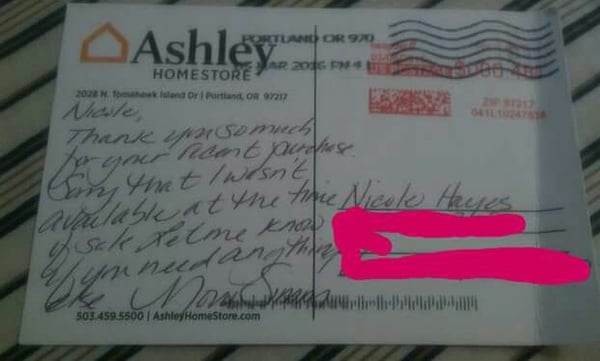 Ashley
HOMESTORE
PORTLAND OR 970
MAR 2016 PM 4
2028 N. Tomahawk Island Dr | Portland, OR 97217
ZIP 97217
Nicole,
Thank you so much
for your recent purchase.
Sorry that I wasn't
available at the time
of sale. Let me know
if you need anything
else
Nicole Hayes
503.459.5500 | AshleyHomeStore.com